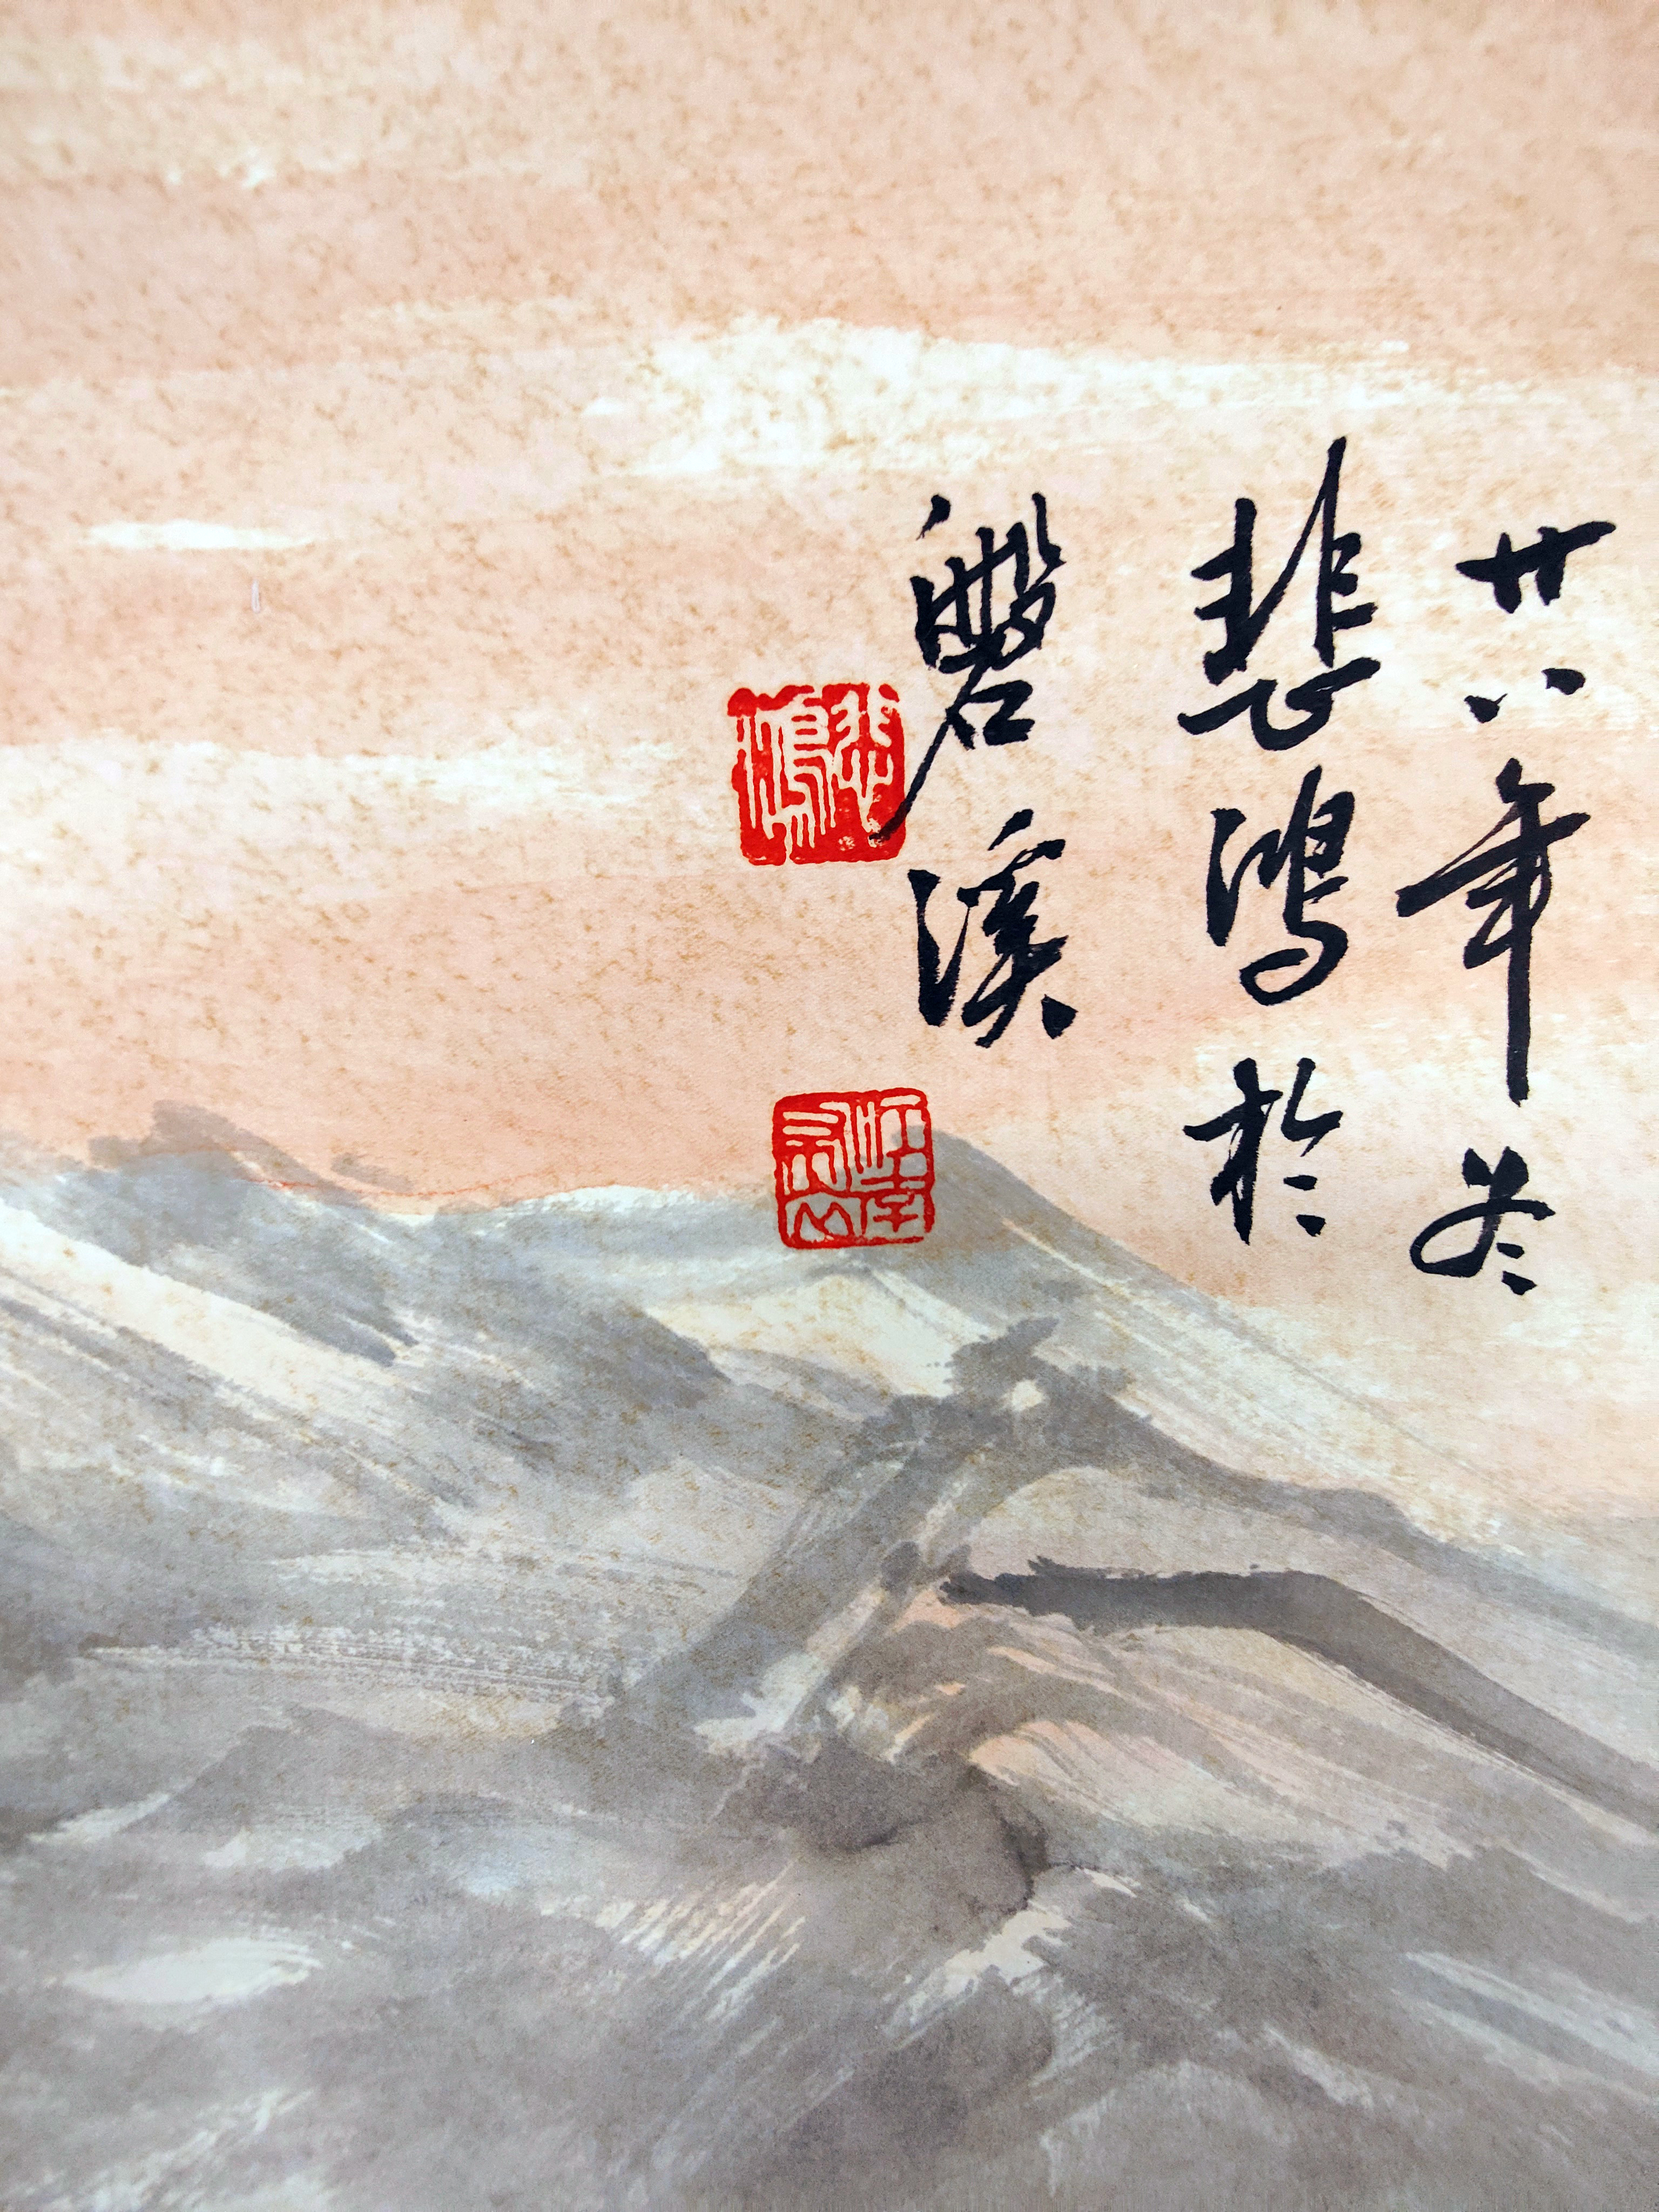 廿八年冬
悲鴻於
磐溪
悲鴻
江南布衣